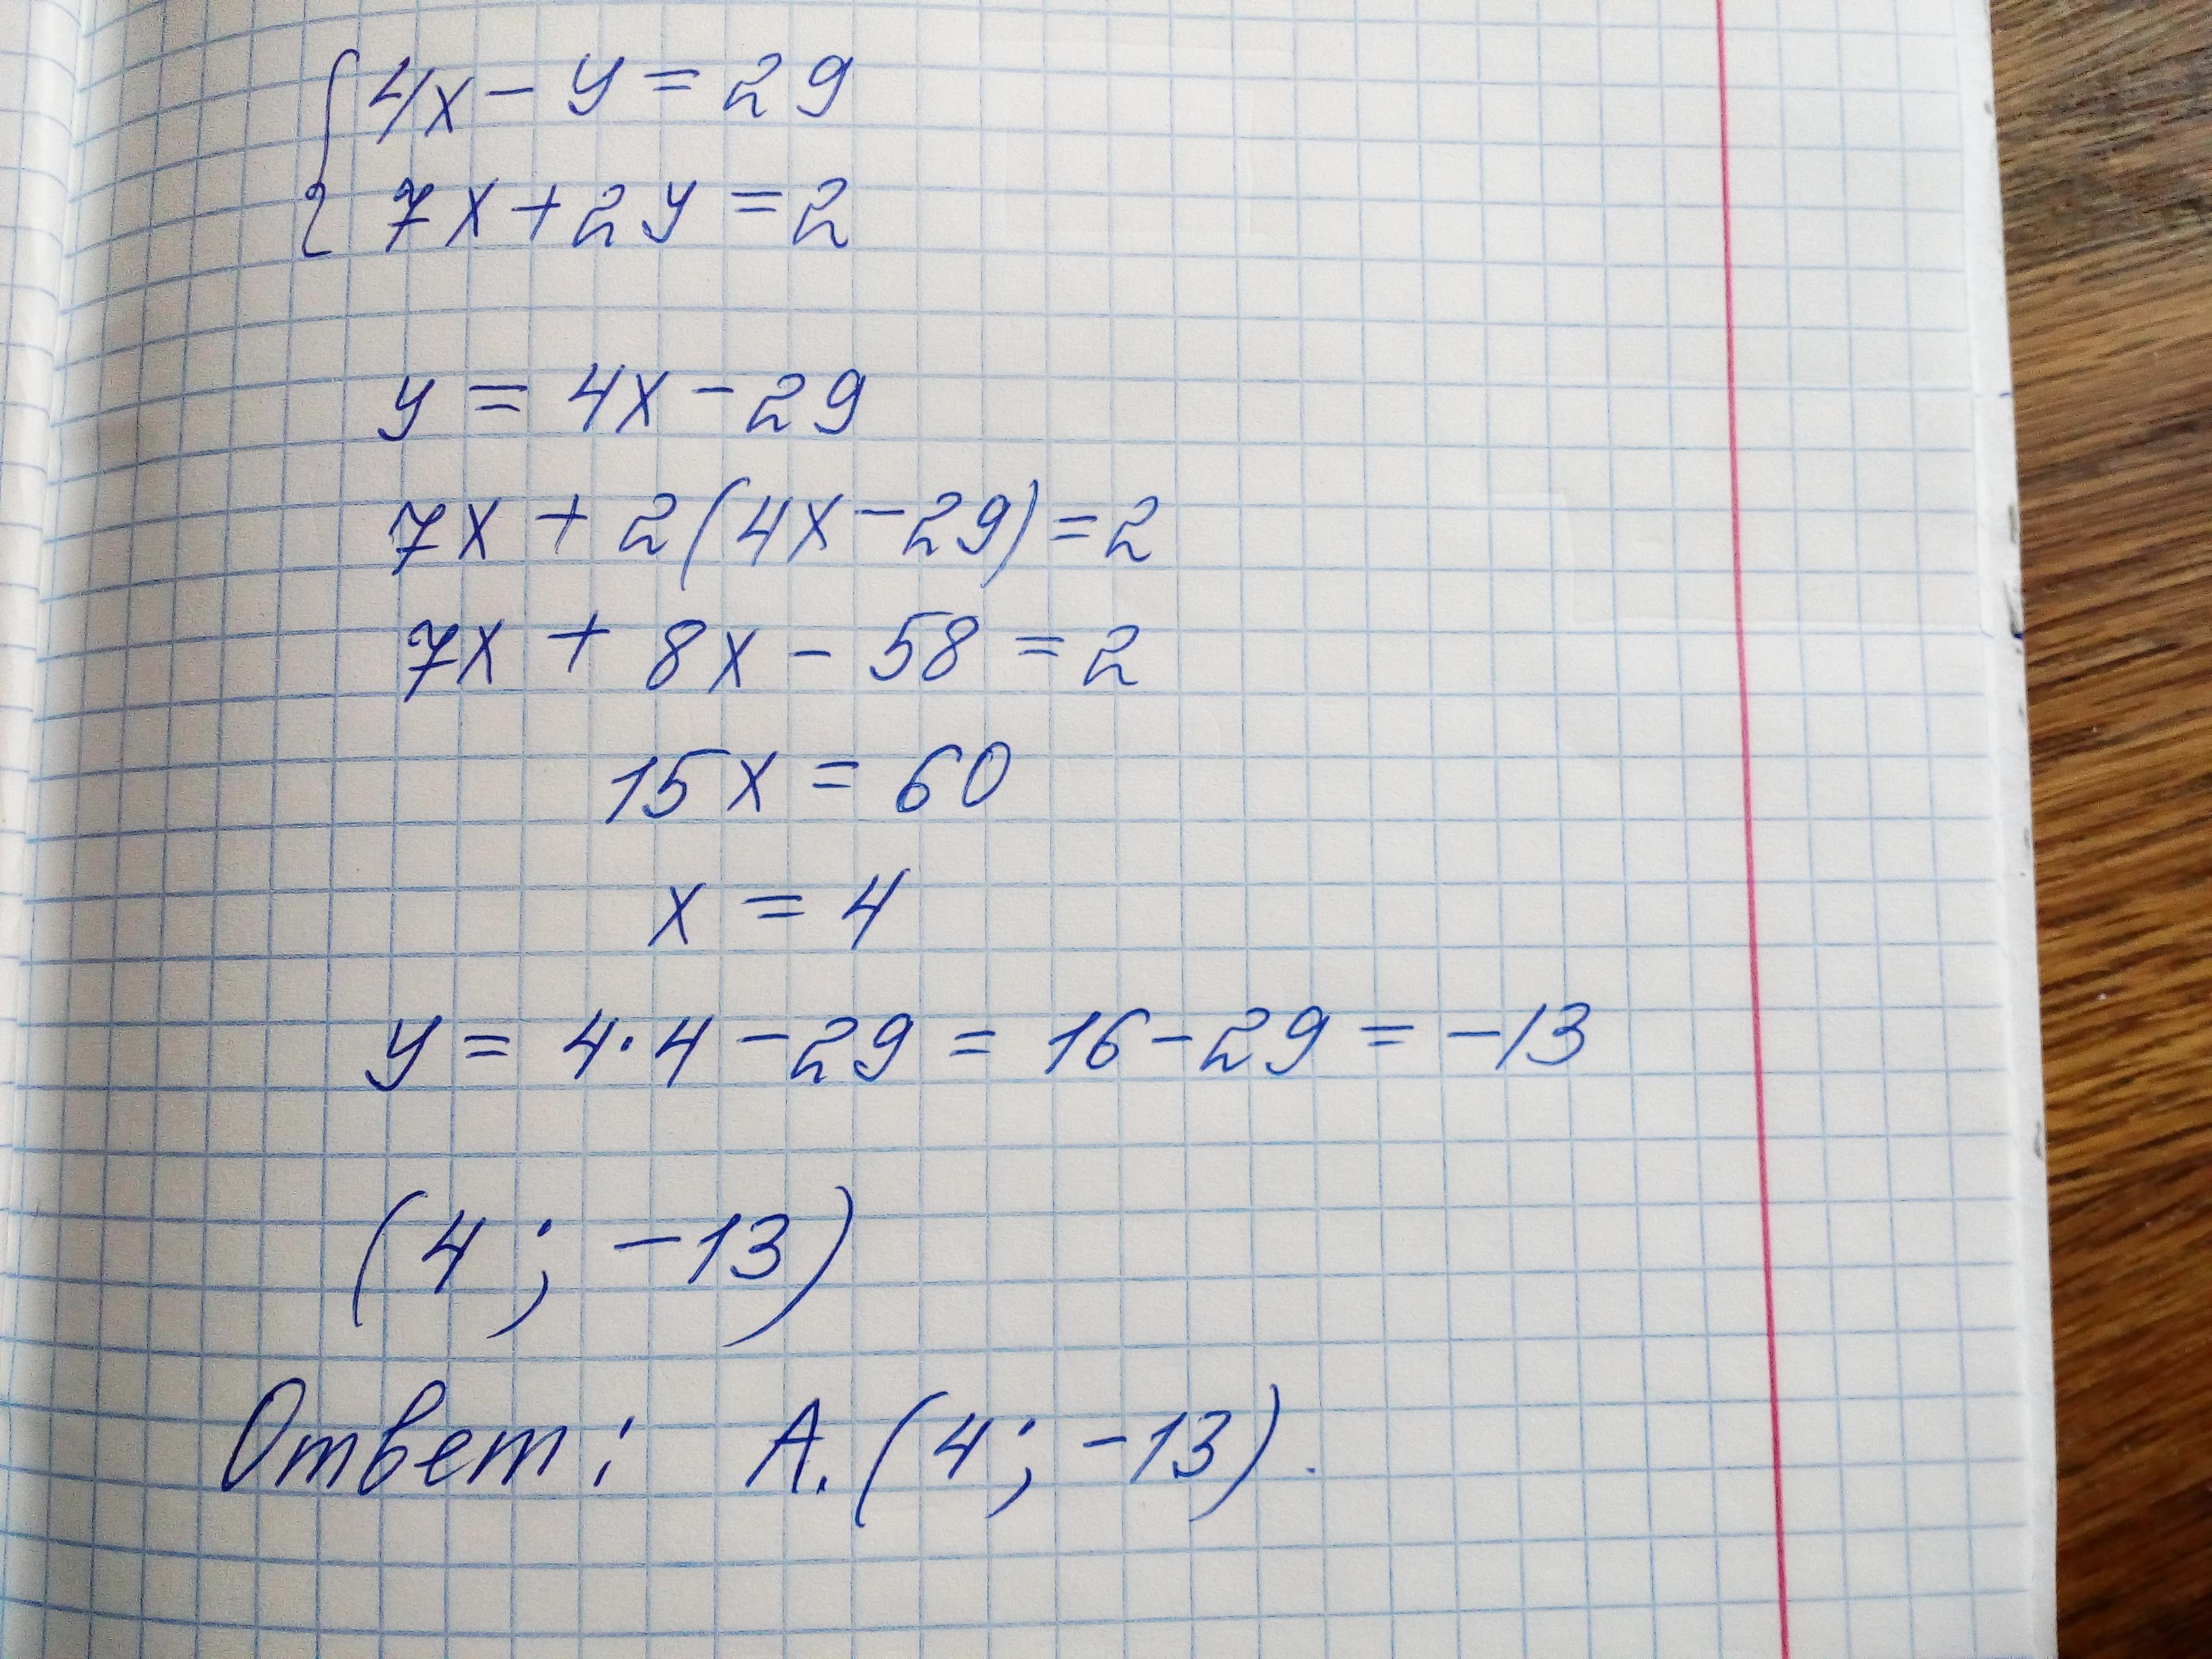 { 4x - y = 29
7x + 2y = 2
y = 4x - 29
7x + 2(4x - 29) = 2
7x + 8x - 58 = 2
15x = 60
x = 4
y = 4·4 - 29 = 16 - 29 = -13
(4 ; -13)
Ответ: А. (4; -13).